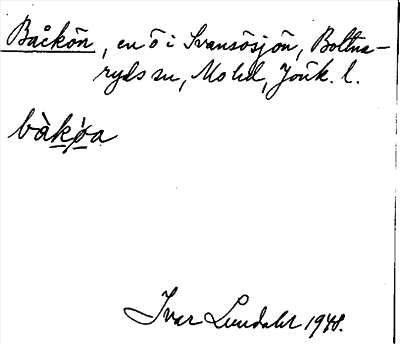 Båckön, en ö i Svansösjön, Bottna-
ryds sn, Mo hd, Jönk. l.
bàkøa
Ivar Lundahl 1948.